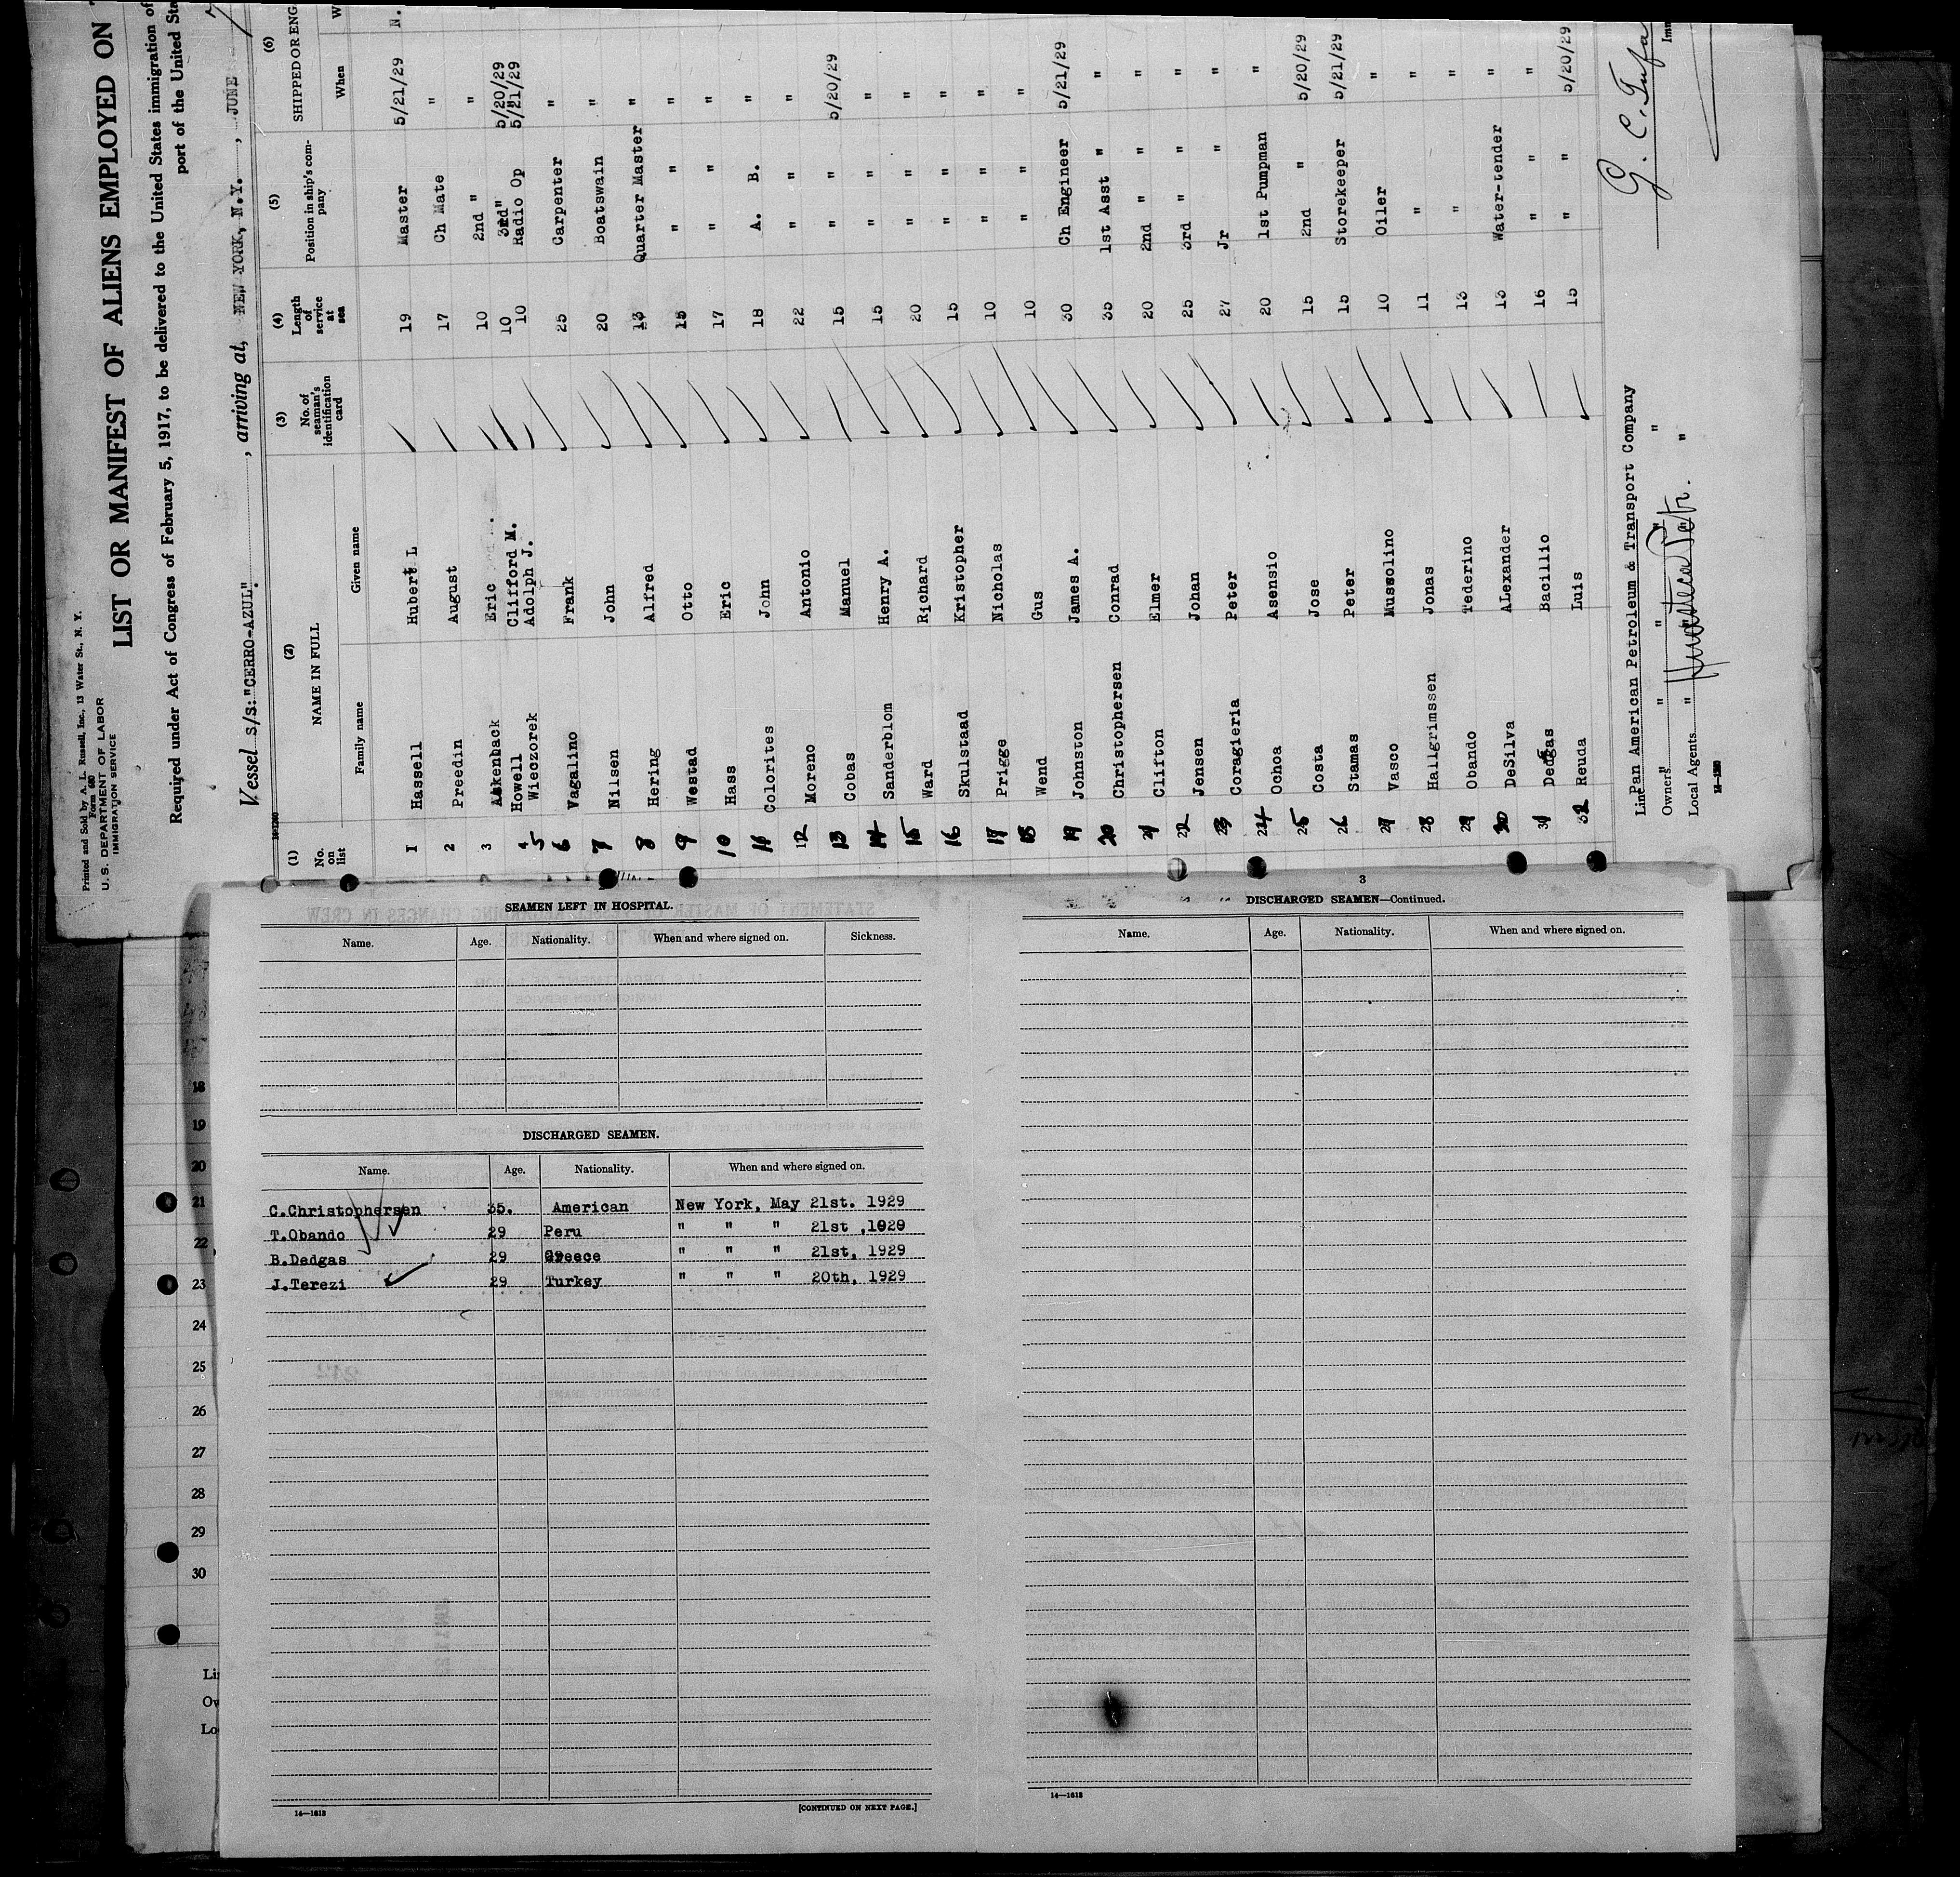 Printed and Sold by A. L. Russell, Inc., 13 Water St., N. Y.
Form 680
U. S. DEPARTMENT OF LABOR
IMMIGRATION SERVICE
LIST OR MANIFEST OF ALIENS EMPLOYED ON
Required under Act of Congress of February 5, 1917, to be delivered to the United States immigration
port of the United
Vessel S/S: "CERRO-AZUL". , arriving at, NEW YORK, N.Y. , JUNE
(1) No. on list
(2) NAME IN FULL
Family name Given name
(3) No. of seaman's identification card
(4) Length of service at sea
(5) Position in ship's company
(6) SHIPPED OR ENG
When
1 Hassell Hubert L 19 Master 5/21/29 N.
2 Preedin August 17 Ch Mate "
3 Aakenback Eric 10 2nd " "
4 Howell Clifford M. 10 3rd " 5/20/29
5 Wieczorek Adolph J. 10 Radio Op 5/21/29
6 Vagalino Frank 25 Carpenter "
7 Nilsen John 20 Boatswain "
8 Hering Alfred 13 Quarter Master "
9 Westad Otto 15 " " "
10 Hass Eric 17 " " "
11 Colorites John 18 A. B. "
12 Moreno Antonio 22 " " "
13 Cobas Manuel 15 " " 5/20/29
14 Sanderblom Henry A. 15 " " "
15 Ward Richard 20 " " "
16 Skulstad Kristopher 15 " " "
17 Prigge Nicholas 10 " " "
18 Wend Gus 10 " " "
19 Johnston James A. 30 Ch Engineer 5/21/29
20 Christophersen Conrad 35 1st Asst " "
21 Clifton Elmer 20 2nd " " "
22 Jensen Johan 25 3rd " " "
23 Coragieria Peter 27 Jr " "
24 Ochoa Asensio 20 1st Pumpman "
25 Costa Jose 15 2nd " 5/20/29
26 Stamas Peter 15 Storekeeper 5/21/29
27 Vasco Mussolino 10 Oiler "
28 Hallgrimssen Jonas 11 " "
29 Obando Tederino 13 " "
30 DeSilva ALexander 13 Water-tender "
31 Dedgas Bacillio 16 " " "
32 Reuda Luis 15 " " 5/20/29
Line Pan American Petroleum & Transport Company
Owners " " " "
Local Agents " Huasteca Pet. "
SEAMEN LEFT IN HOSPITAL.
Name. Age. Nationality. When and where signed on. Sickness.
DISCHARGED SEAMEN.
Name. Age. Nationality. When and where signed on.
C.Christophersen 35. American New York, May 21st. 1929
T.Obando 29 Peru " " " 21st ,1929
B.Dedgas 29 Greece " " " 21st, 1929
J.Terezi 29 Turkey " " " 20th, 1929
14—1613
[CONTINUED ON NEXT PAGE.]
3
DISCHARGED SEAMEN—Continued.
Name. Age. Nationality. When and where signed on.
14—1613
18
19
20
21
22
23
24
25
26
27
28
29
30